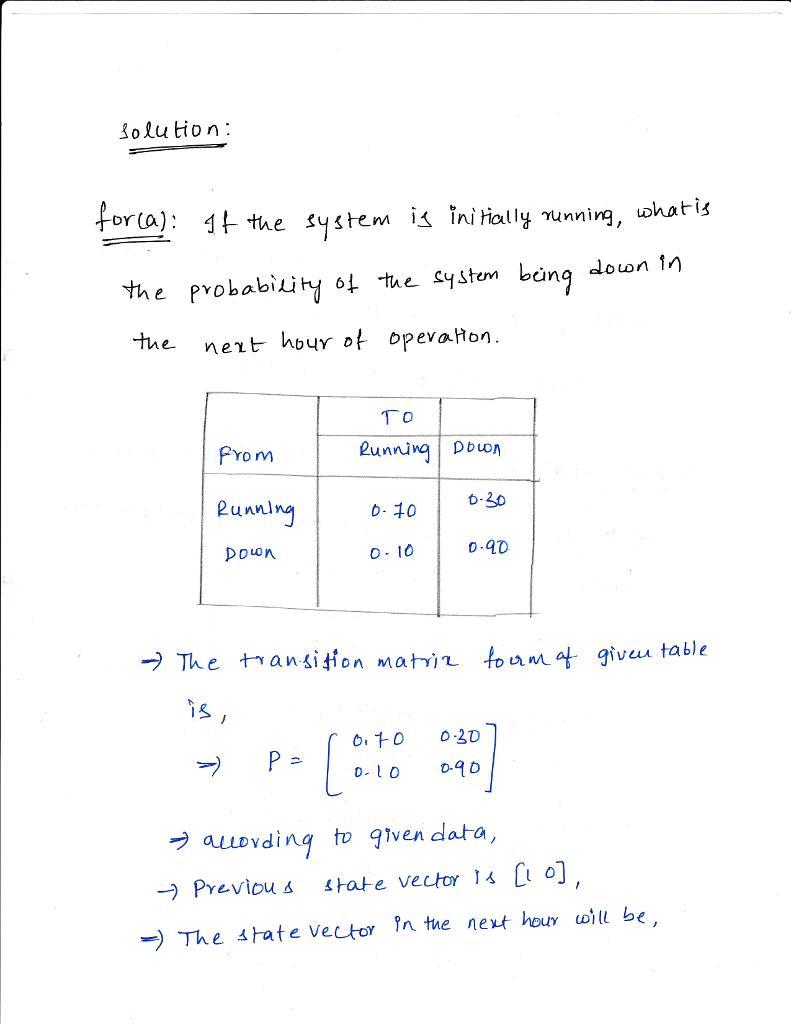 Solution:
for(a): If the system is initially running, what is
the probability of the system being down in
the next hour of operation.
TO
From Running Down
Running 0.70 0.30
Down 0.10 0.90
→ The transition matrix form of given table
is,
⇒ P = [ 0.70 0.30
0.10 0.90 ]
⇒ according to given data,
→ Previous state vector is [1 0],
⇒ The state vector in the next hour will be,